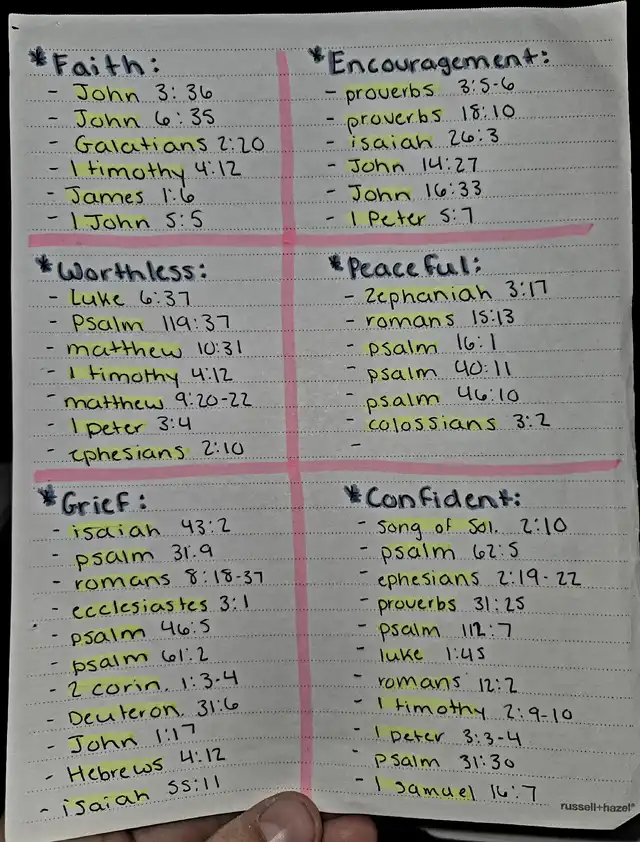 *Faith:
- John 3:36
- John 6:35
- Galatians 2:20
- 1 timothy 4:12
- James 1:6
- 1 John 5:5
*Encouragement:
- proverbs 3:5-6
- proverbs 18:10
- isaiah 26:3
- John 14:27
- John 16:33
- 1 Peter 5:7
*Worthless:
- Luke 6:37
- Psalm 119:37
- matthew 10:31
- 1 timothy 4:12
- matthew 9:20-22
- 1 peter 3:4
- ephesians 2:10
*Peaceful:
- Zephaniah 3:17
- romans 15:13
- psalm 16:1
- psalm 40:11
- psalm 46:10
- colossians 3:2
-
*Grief:
- isaiah 43:2
- psalm 31.9
- romans 8:18-37
- ecclesiastes 3:1
- psalm 46:5
- psalm 61:2
- 2 corin. 1:3-4
- Deuteron. 31:6
- John 1:17
- Hebrews 4:12
- isaiah 55:11
*Confident:
- song of Sol. 2:10
- psalm 62:5
- ephesians 2:19-22
- proverbs 31:25
- psalm 112:7
- luke 1:45
- romans 12:2
- 1 timothy 2:9-10
- 1 peter 3:3-4
- psalm 31:30
- 1 samuel 16:7
russell+hazel®